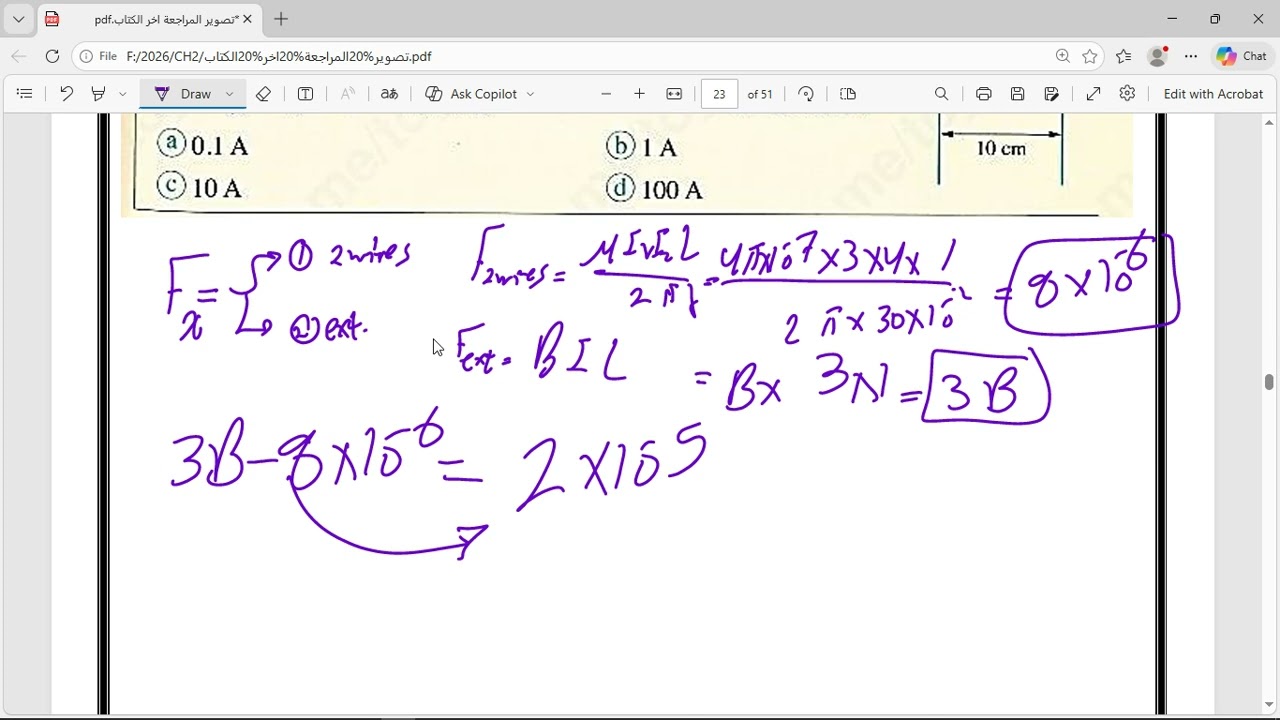 تصوير المراجعة اخر الكتاب.pdf*
File F:/2026/CH2/تصوير%20المراجعة%20اخر%20الكتاب.pdf
Chat
Draw
Ask Copilot
23 of 51
Edit with Acrobat
a 0.1 A
b 1 A
10 cm
c 10 A
d 100 A
F x = ① 2 wires
② ext.
F 2wires = μ I₁ I₂ L / 2 π d = 4π×10⁻⁷ × 3 × 4 × 1 / 2 π × 30 × 10⁻² = 8 × 10⁻⁶
F ext = B I L = B × 3 × 1 = 3 B
3B - 8 × 10⁻⁶ = 2 × 10⁻⁵